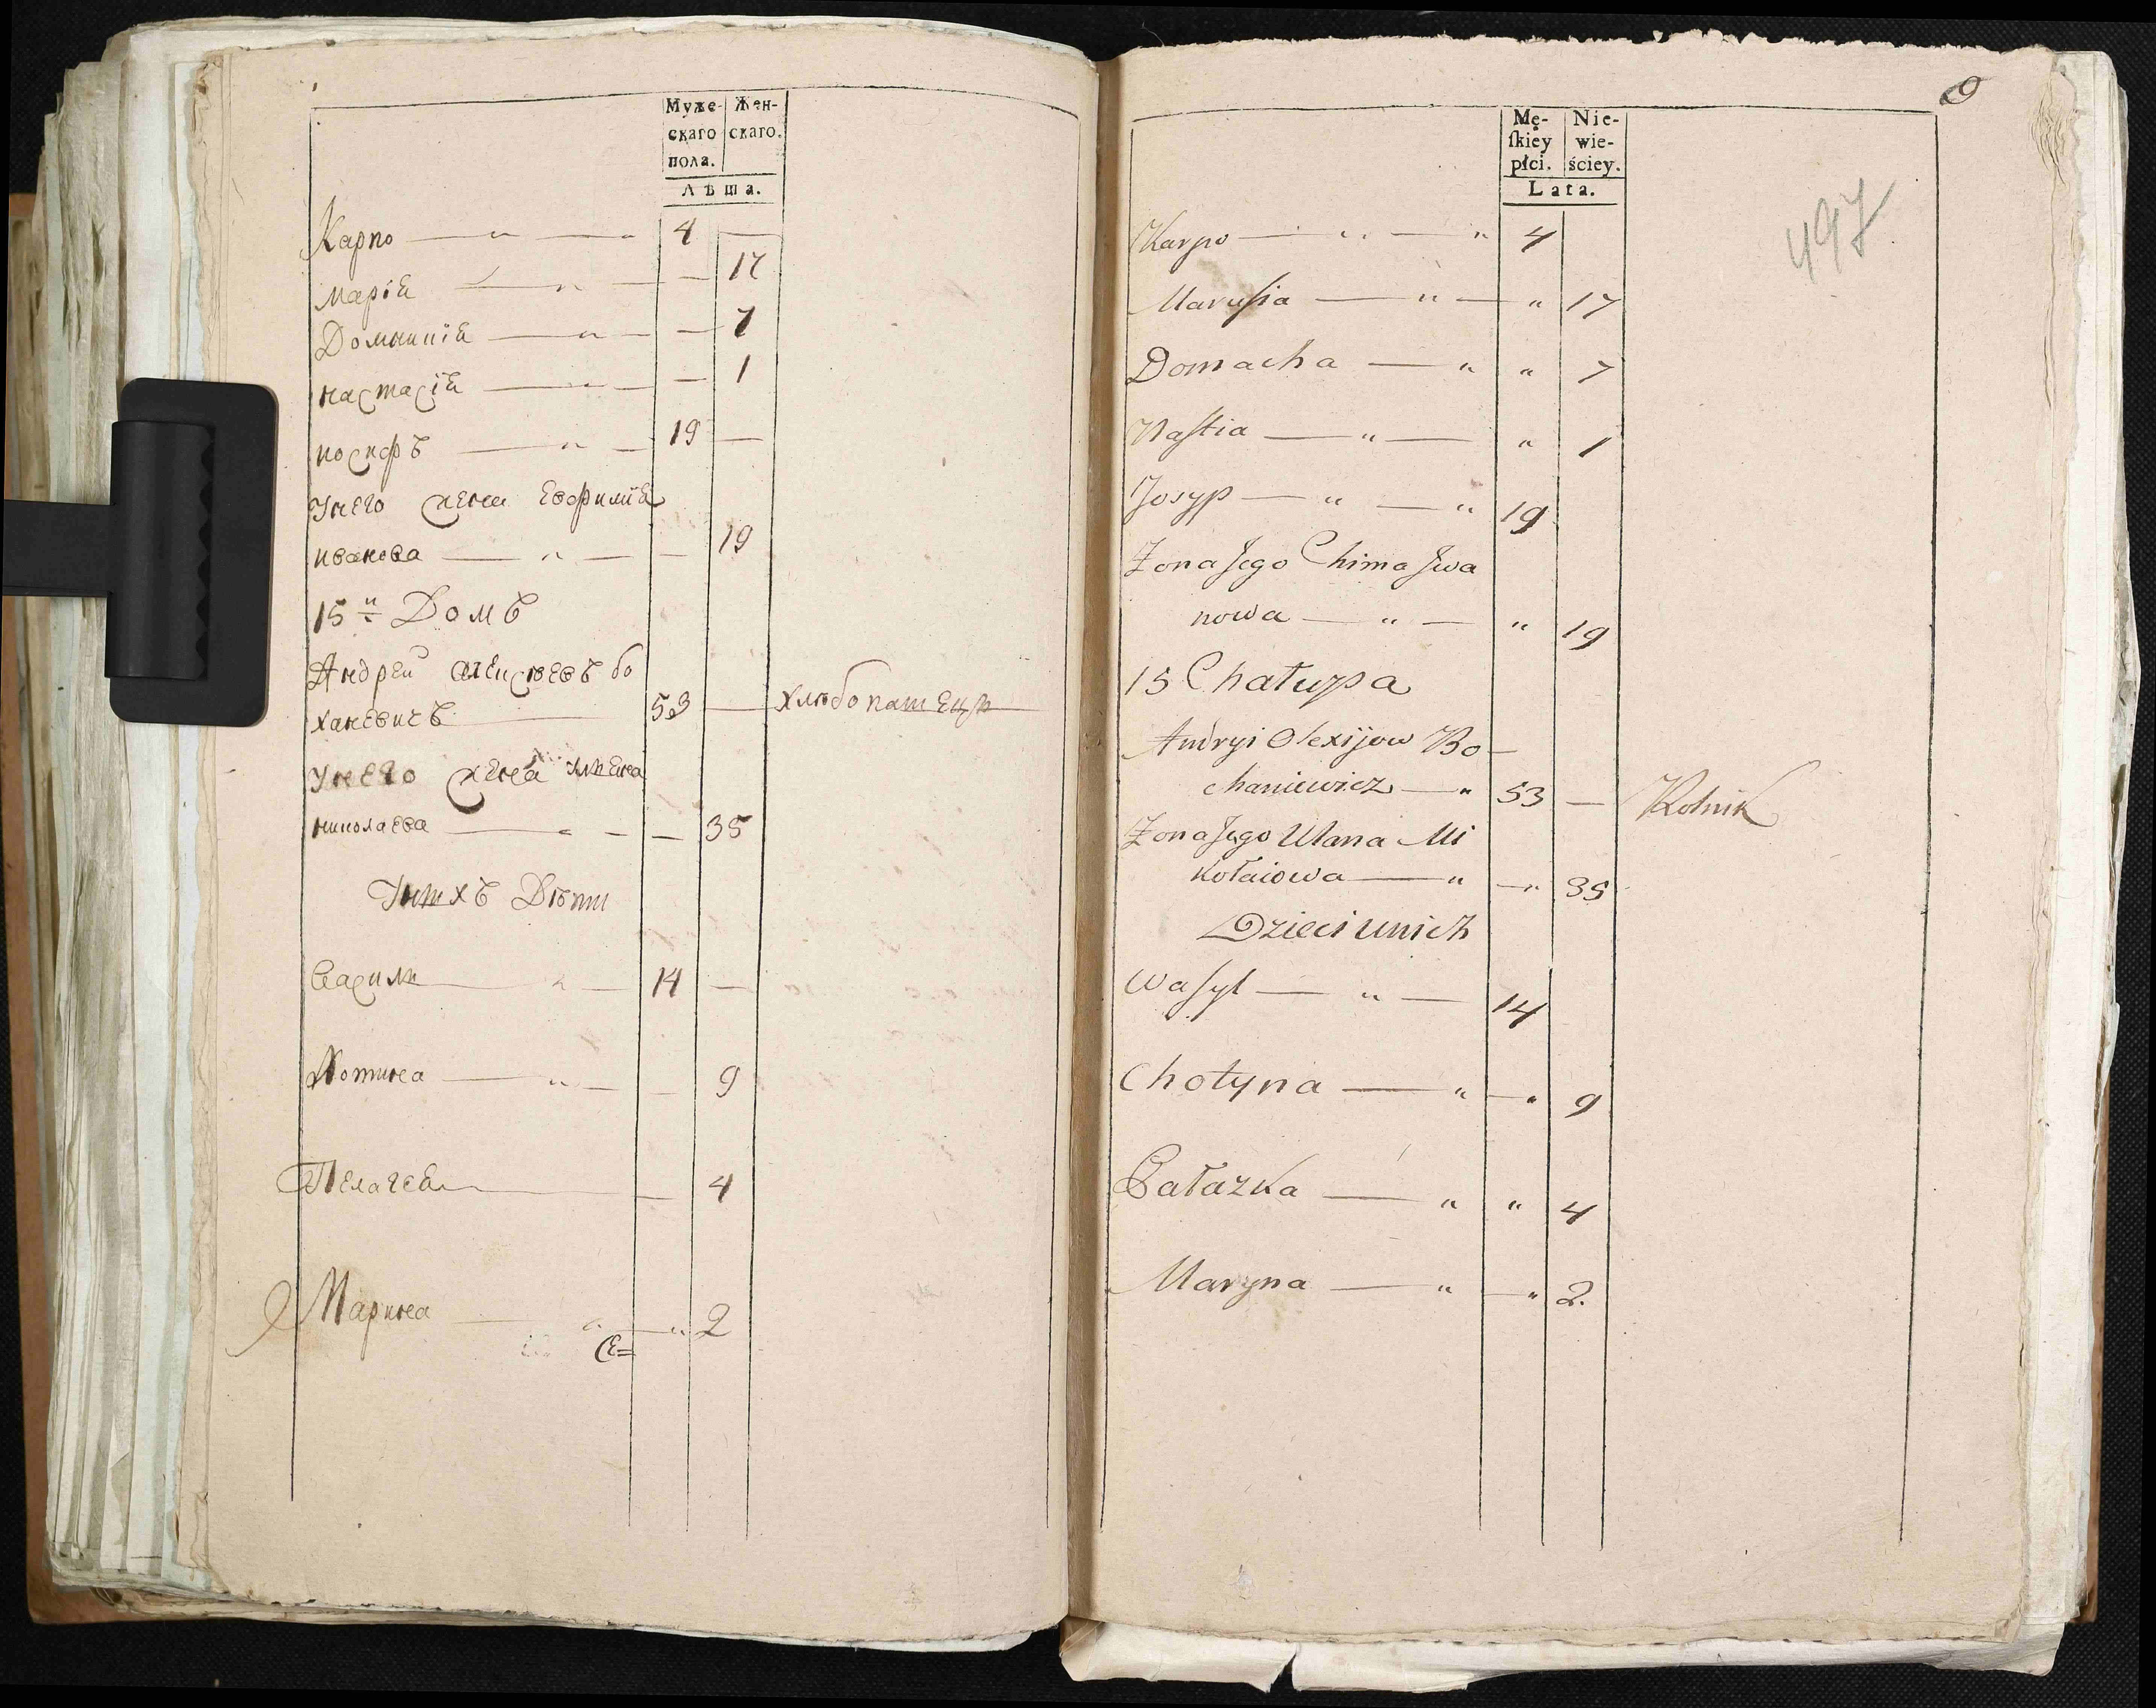 Муже- Жен-
скаго скаго.
пола.
Лѣта.
Карпо — „ — „ 4 —
Марія — „ — — 17
Домникія — „ — — 7
настасія — „ — — 1
иосифъ — „ — 19 —
Унего жена Евфимія
иванова — „ — — 19
15й Домъ
Андрей алексѣевъ бо
ханевичъ — 53 — хлѣбопашецъ
Унего жена
николаева — „ — — 35
Унихъ Дѣти
Василь — „ — 14 —
Хотина — „ — — 9
Пелагея — — 4
Марина — „ — „ 2
Се=
9
Mę- Nie-
ſkiéy wie-
płci. ściey.
Lata.
497
Karpo — „ — „ 4
Maruſia — „ — „ 17
Domacha — „ „ 7
Naſtia — „ — „ 1
Josyp — „ — „ 19
Zona Jego Chima Jwa
nowa — „ — „ 19
15 Chałupa
Andryi Olexijow Bo—
chaniewicz — „ 53 — Rolnik
Zona Jego Ulana Mi
kołaiowa — „ —„ 35
Dzieci unich
Waſyl — „ — 14
Chotyna — „ —„ 9
Pałazka — „ „ 4
Maryna — „ —„ 2.